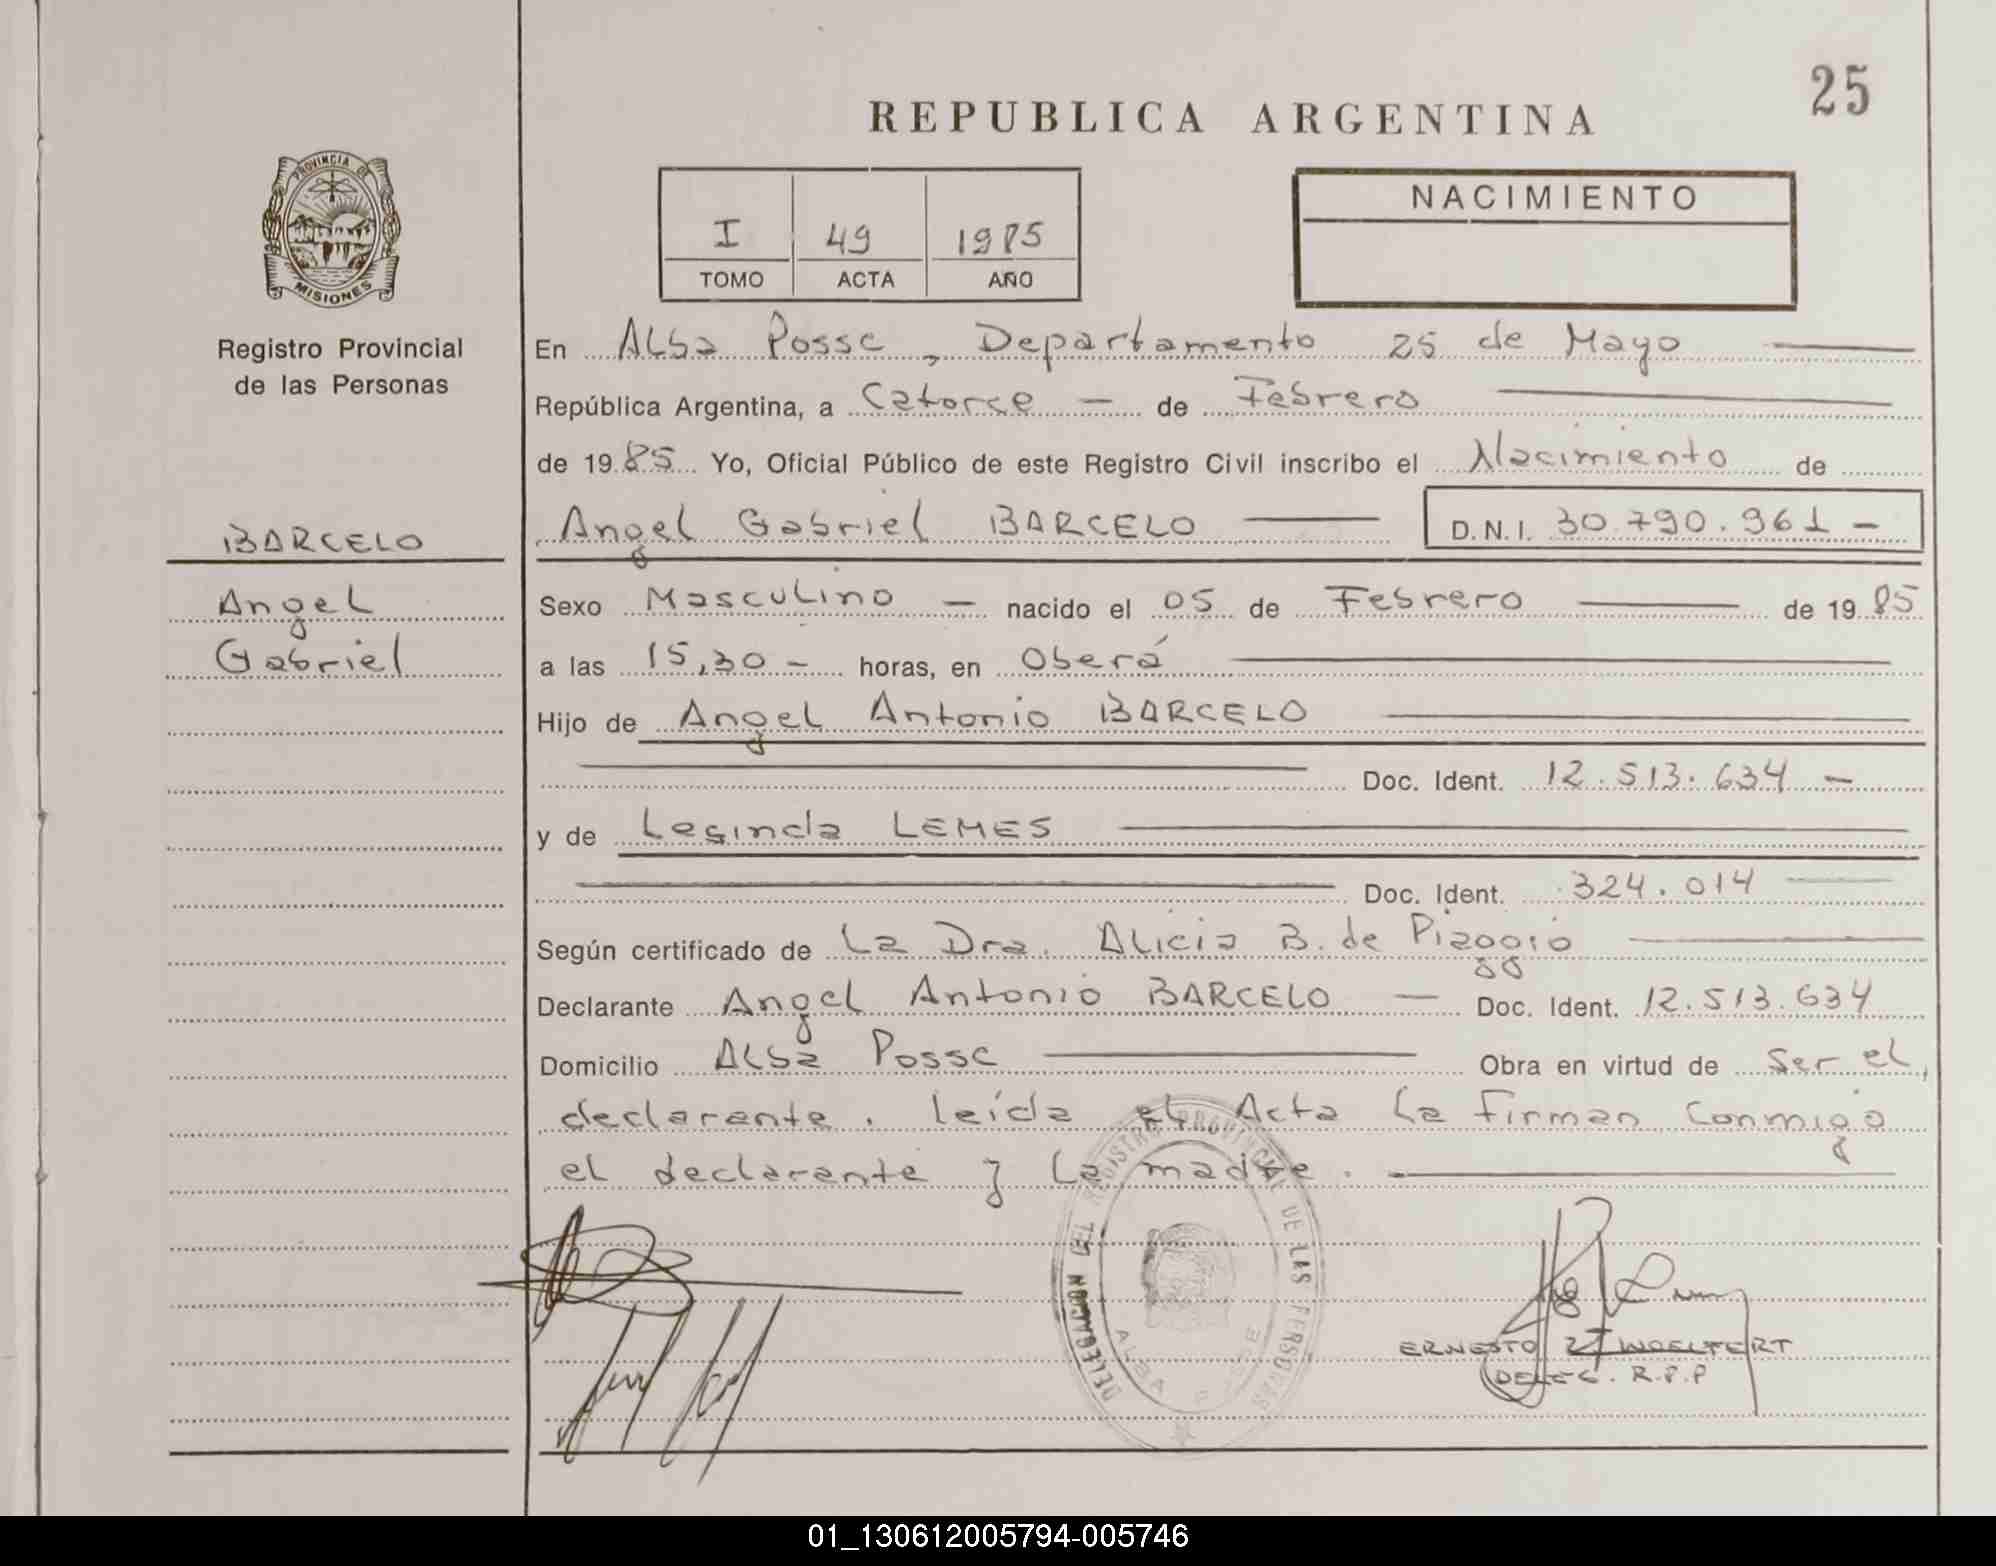 25
REPUBLICA ARGENTINA
PROVINCIA DE
MISIONES
Registro Provincial
de las Personas
I 49 1985
TOMO ACTA AÑO
NACIMIENTO
En Alba Posse, Departamento 25 de Mayo
República Argentina, a Catorce - de Febrero
de 1985 Yo, Oficial Público de este Registro Civil inscribo el Nacimiento de
Angel Gabriel BARCELO D.N.I. 30.790.961 -
BARCELO
Angel
Gabriel
Sexo Masculino - nacido el 05 de Febrero de 1985
a las 15,30 - horas, en Oberá
Hijo de Angel Antonio BARCELO
Doc. Ident. 12.513.634 -
y de LEMES
Doc. Ident. 324.014
Según certificado de La Dra. Alicia B. de Piaggio
Declarante Angel Antonio BARCELO - Doc. Ident. 12.513.634
Domicilio Alba Posse Obra en virtud de ser el
declarante. leída el Acta la firman conmigo
el declarante y la madre.
DELEGACION DEL REGISTRO PROVINCIAL DE LAS PERSONAS
ALBA POSSE
ERNESTO WOELFERT
DELEG. R.P.P
01_130612005794-005746